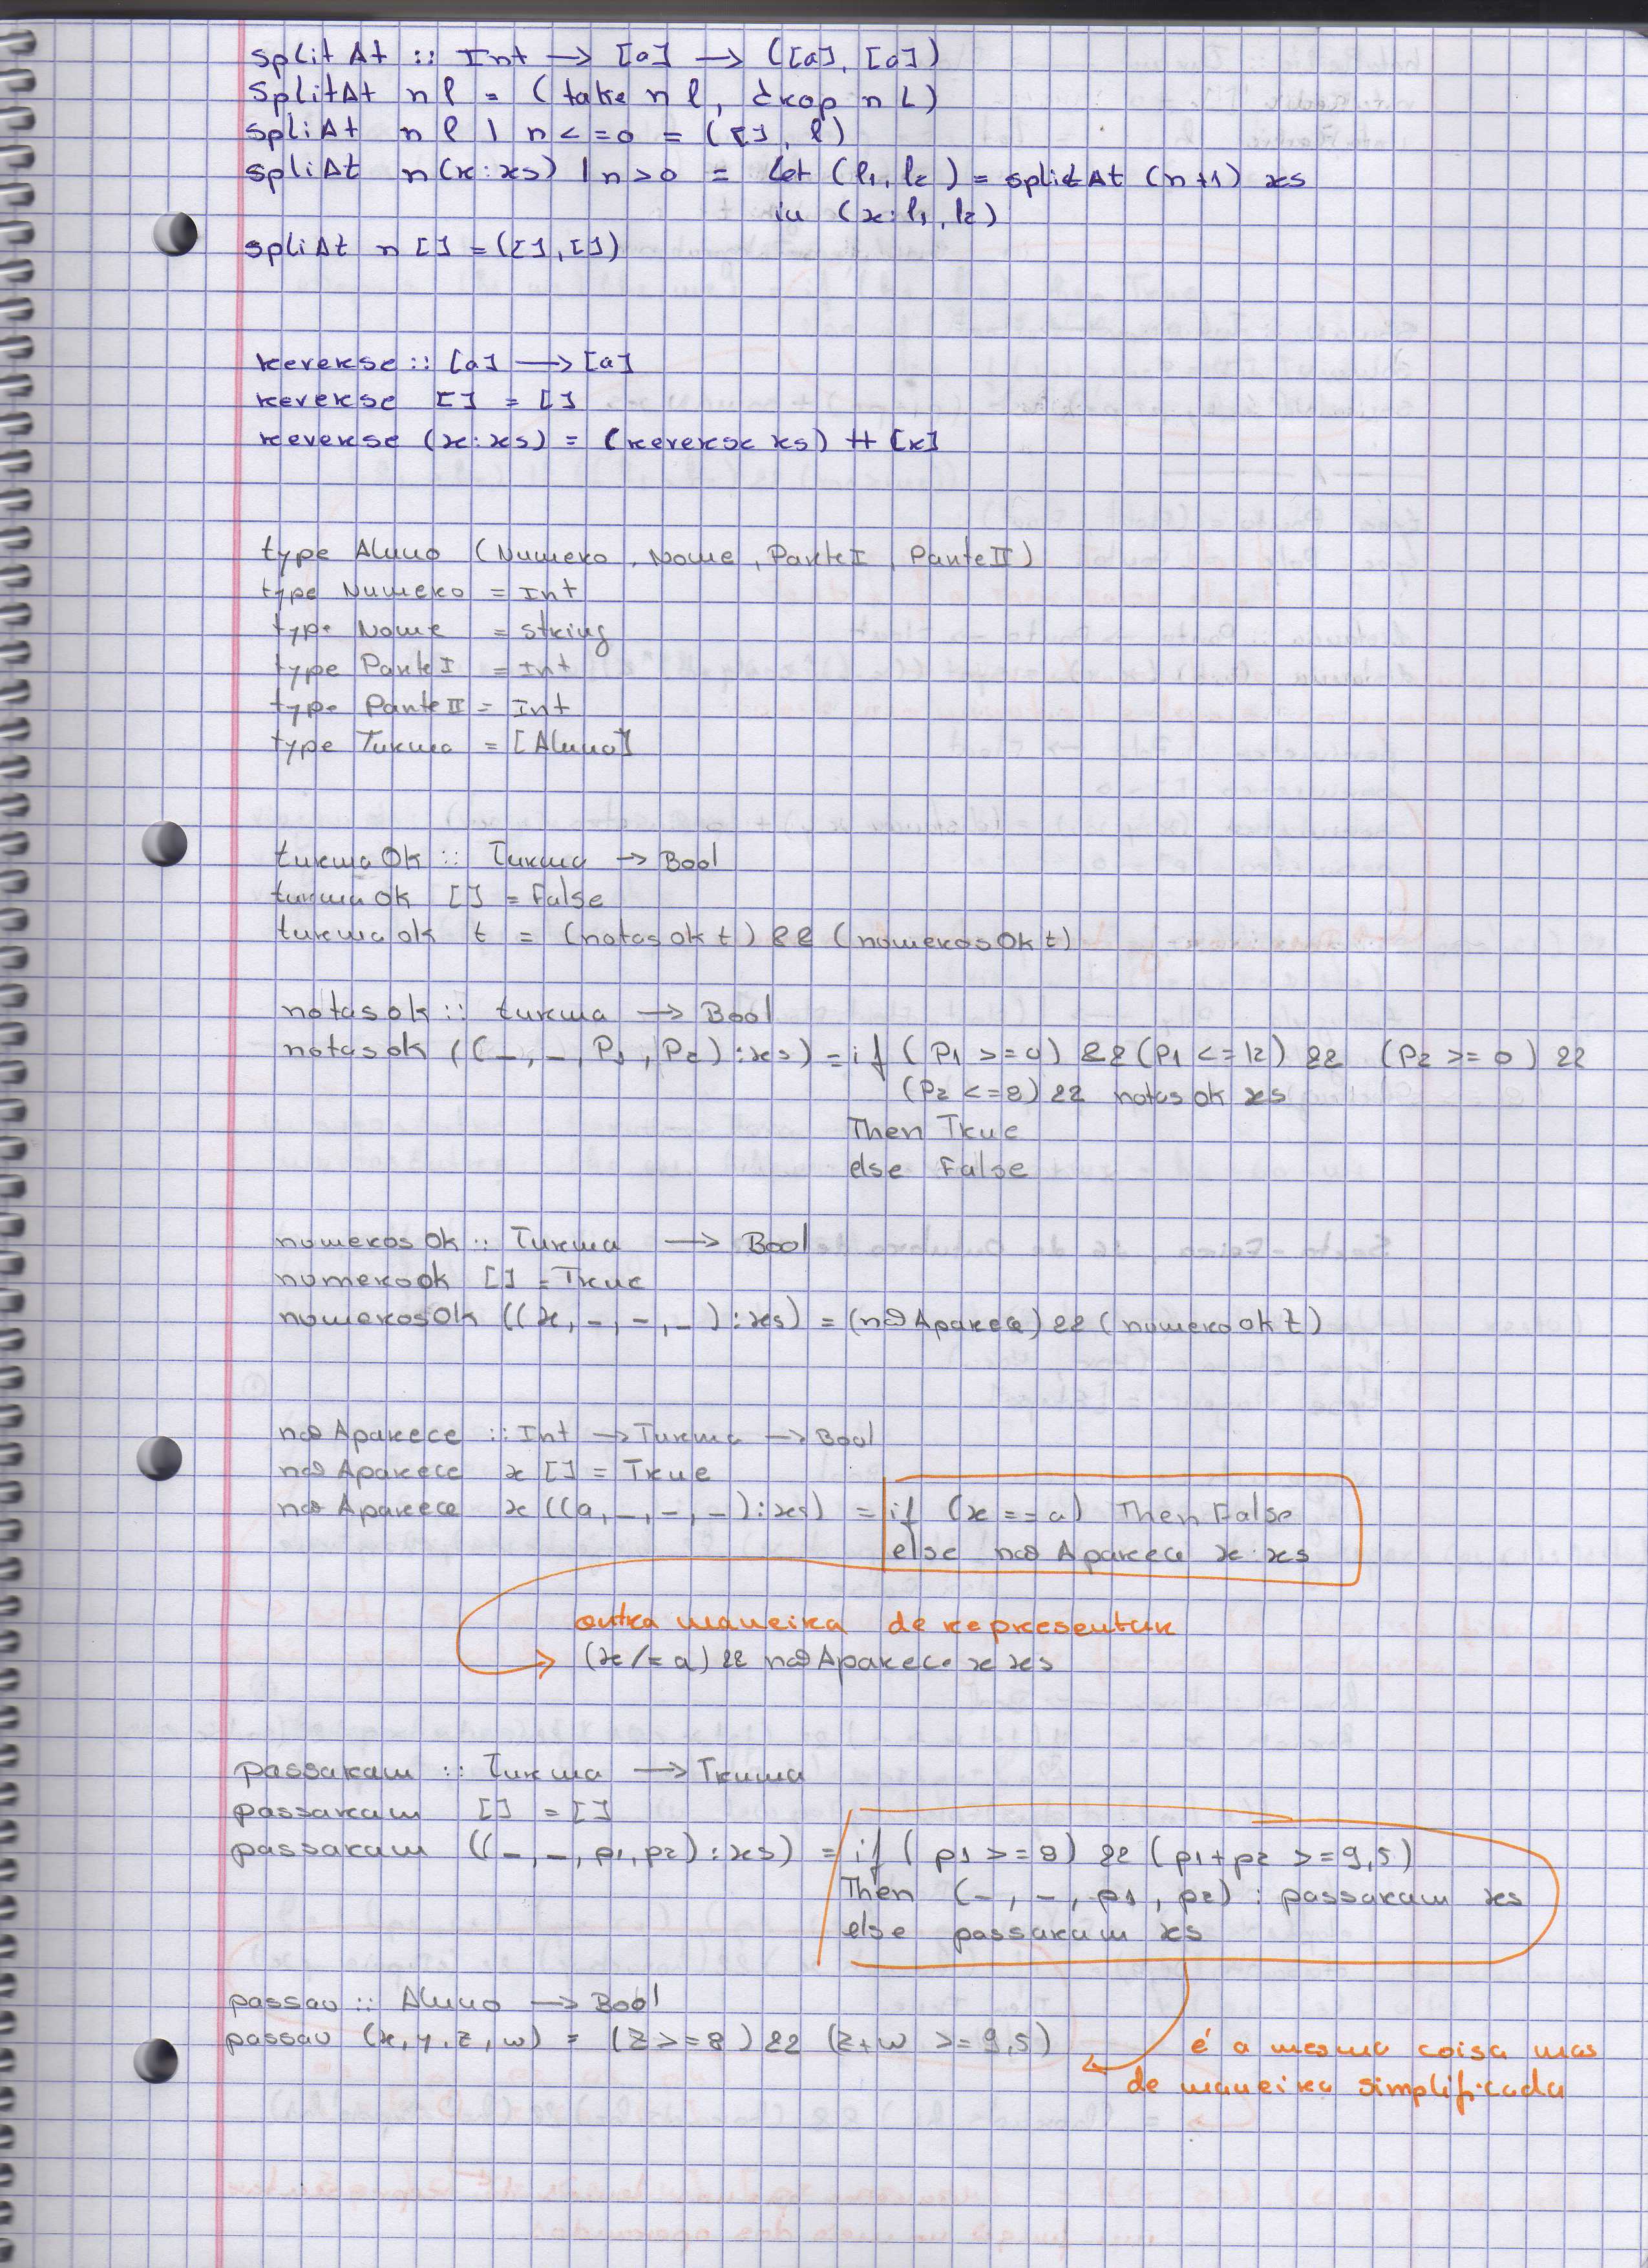 splitAt :: Int → [a] → ([a], [a])
SplitAt n l = (take n l, drop n L)
spliAt n l | n <= 0 = ([], l)
spliAt n(x:xs) | n>0 = let (l1, l2) = splitAt (n+1) xs
in (x:l1, l2)
spliAt n [] = ([], [])
reverse :: [a] → [a]
reverse [] = []
reverse (x:xs) = (reverse xs) ++ [x]
type Aluno (Numero, Nome, ParteI, ParteII)
type Numero = Int
type Nome = string
type ParteI = Int
type ParteII = Int
type Turma = [Aluno]
turmaOk :: Turma → Bool
turmaok [] = False
turmaok t = (notasokt) && (numerosOkt)
notasok :: turma → Bool
notasok ((_, _, P1, P2):xs) = if (P1 >= 0) && (P1 <= 12) && (P2 >= 0) &&
(P2 <= 8) && notasok xs
Then True
else False
numerosOk :: Turma → Bool
numerook [] = True
numerosOk ((x, _, _, _):xs) = (nãoAparece) && (numerookt)
nãoAparece :: Int → Turma → Bool
nãoAparece x [] = True
nãoAparece x ((a, _, _, _):xs) = if (x == a) Then False
else nãoAparece x:xs
outra maneira de representar
(x /= a) && nãoAparece x xs
passaram :: Turma → Truma
passaram [] = []
passaram ((_, _, p1, p2):xs) = if (p1 >= 8) && (p1+p2 >= 9,5)
Then (_, _, p1, p2) : passaram xs
else passaram xs
passou :: Aluno → Bool
passou (x, y, z, w) = (z >= 8) && (z+w >= 9,5)
é a mesma coisa mas
de maneira simplificada